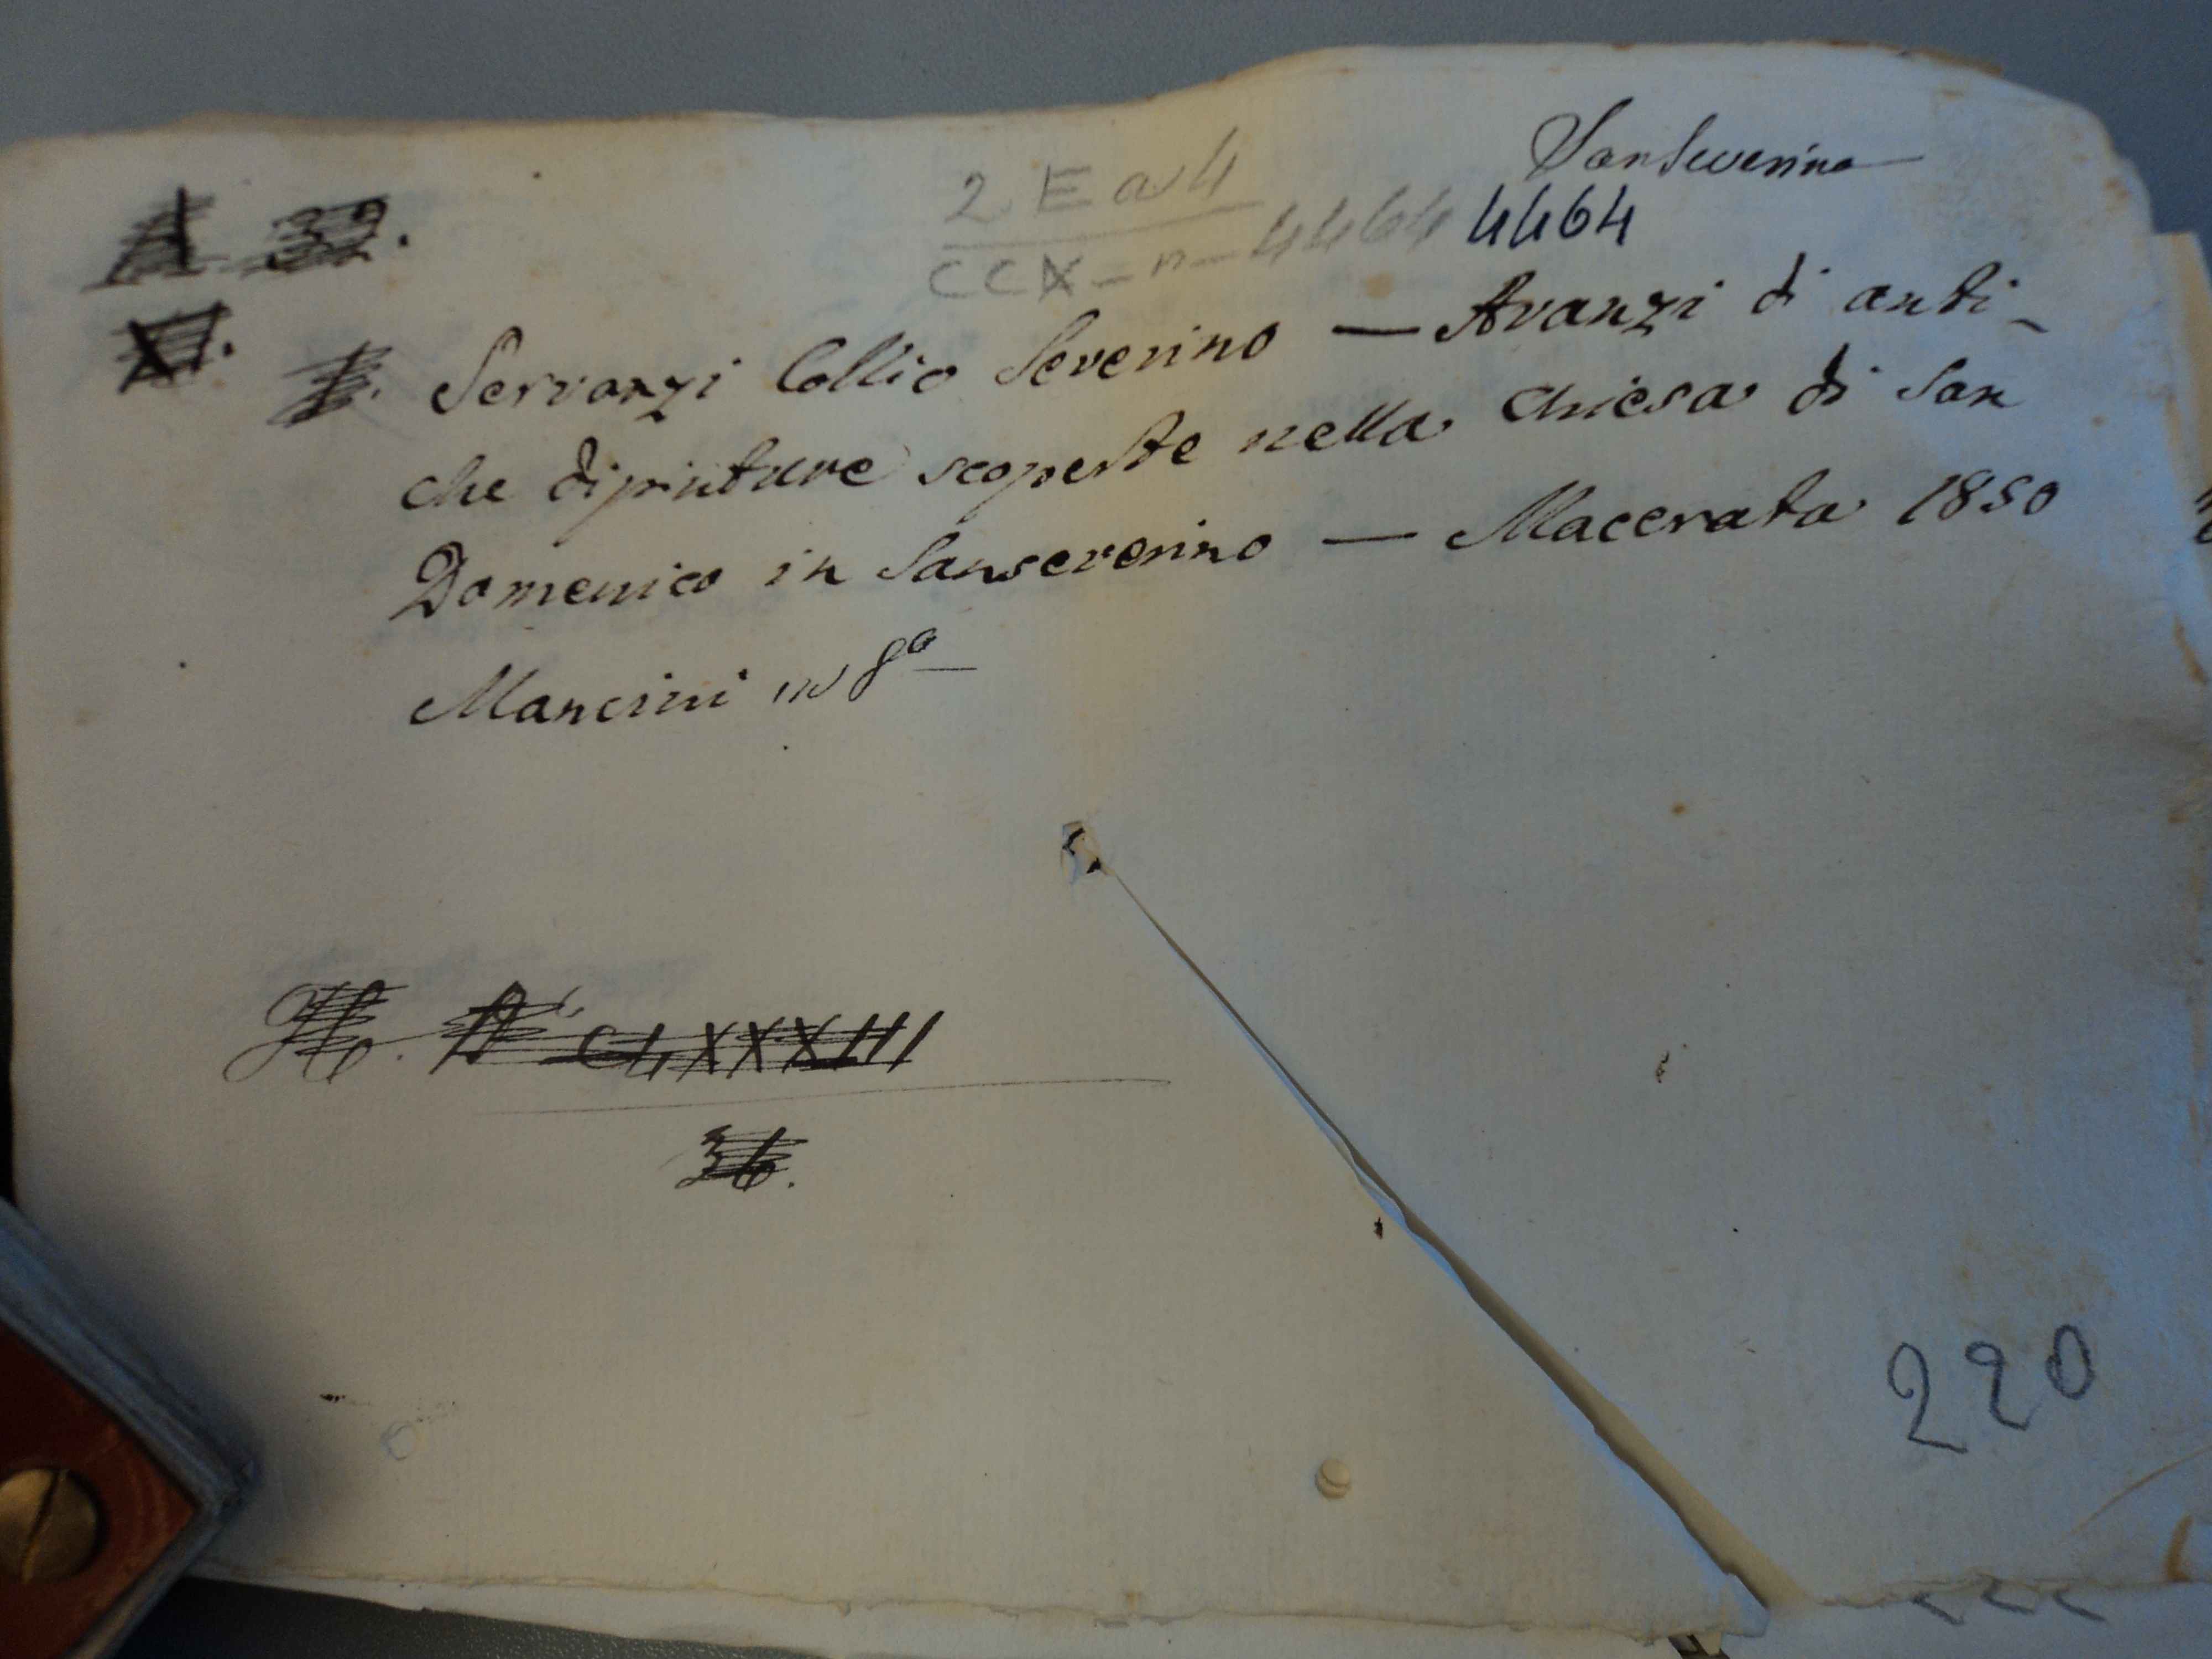 SanSeverino
2 E a 4
CCX - n - 4464 4464
A 32.
XI.
Servanzi Collio Severino — Avanzi di anti-
che dipinture scoperte nella Chiesa di San
Domenico in Sanseverino — Macerata 1850
Mancini in 8o
CLXXXIII
36.
220